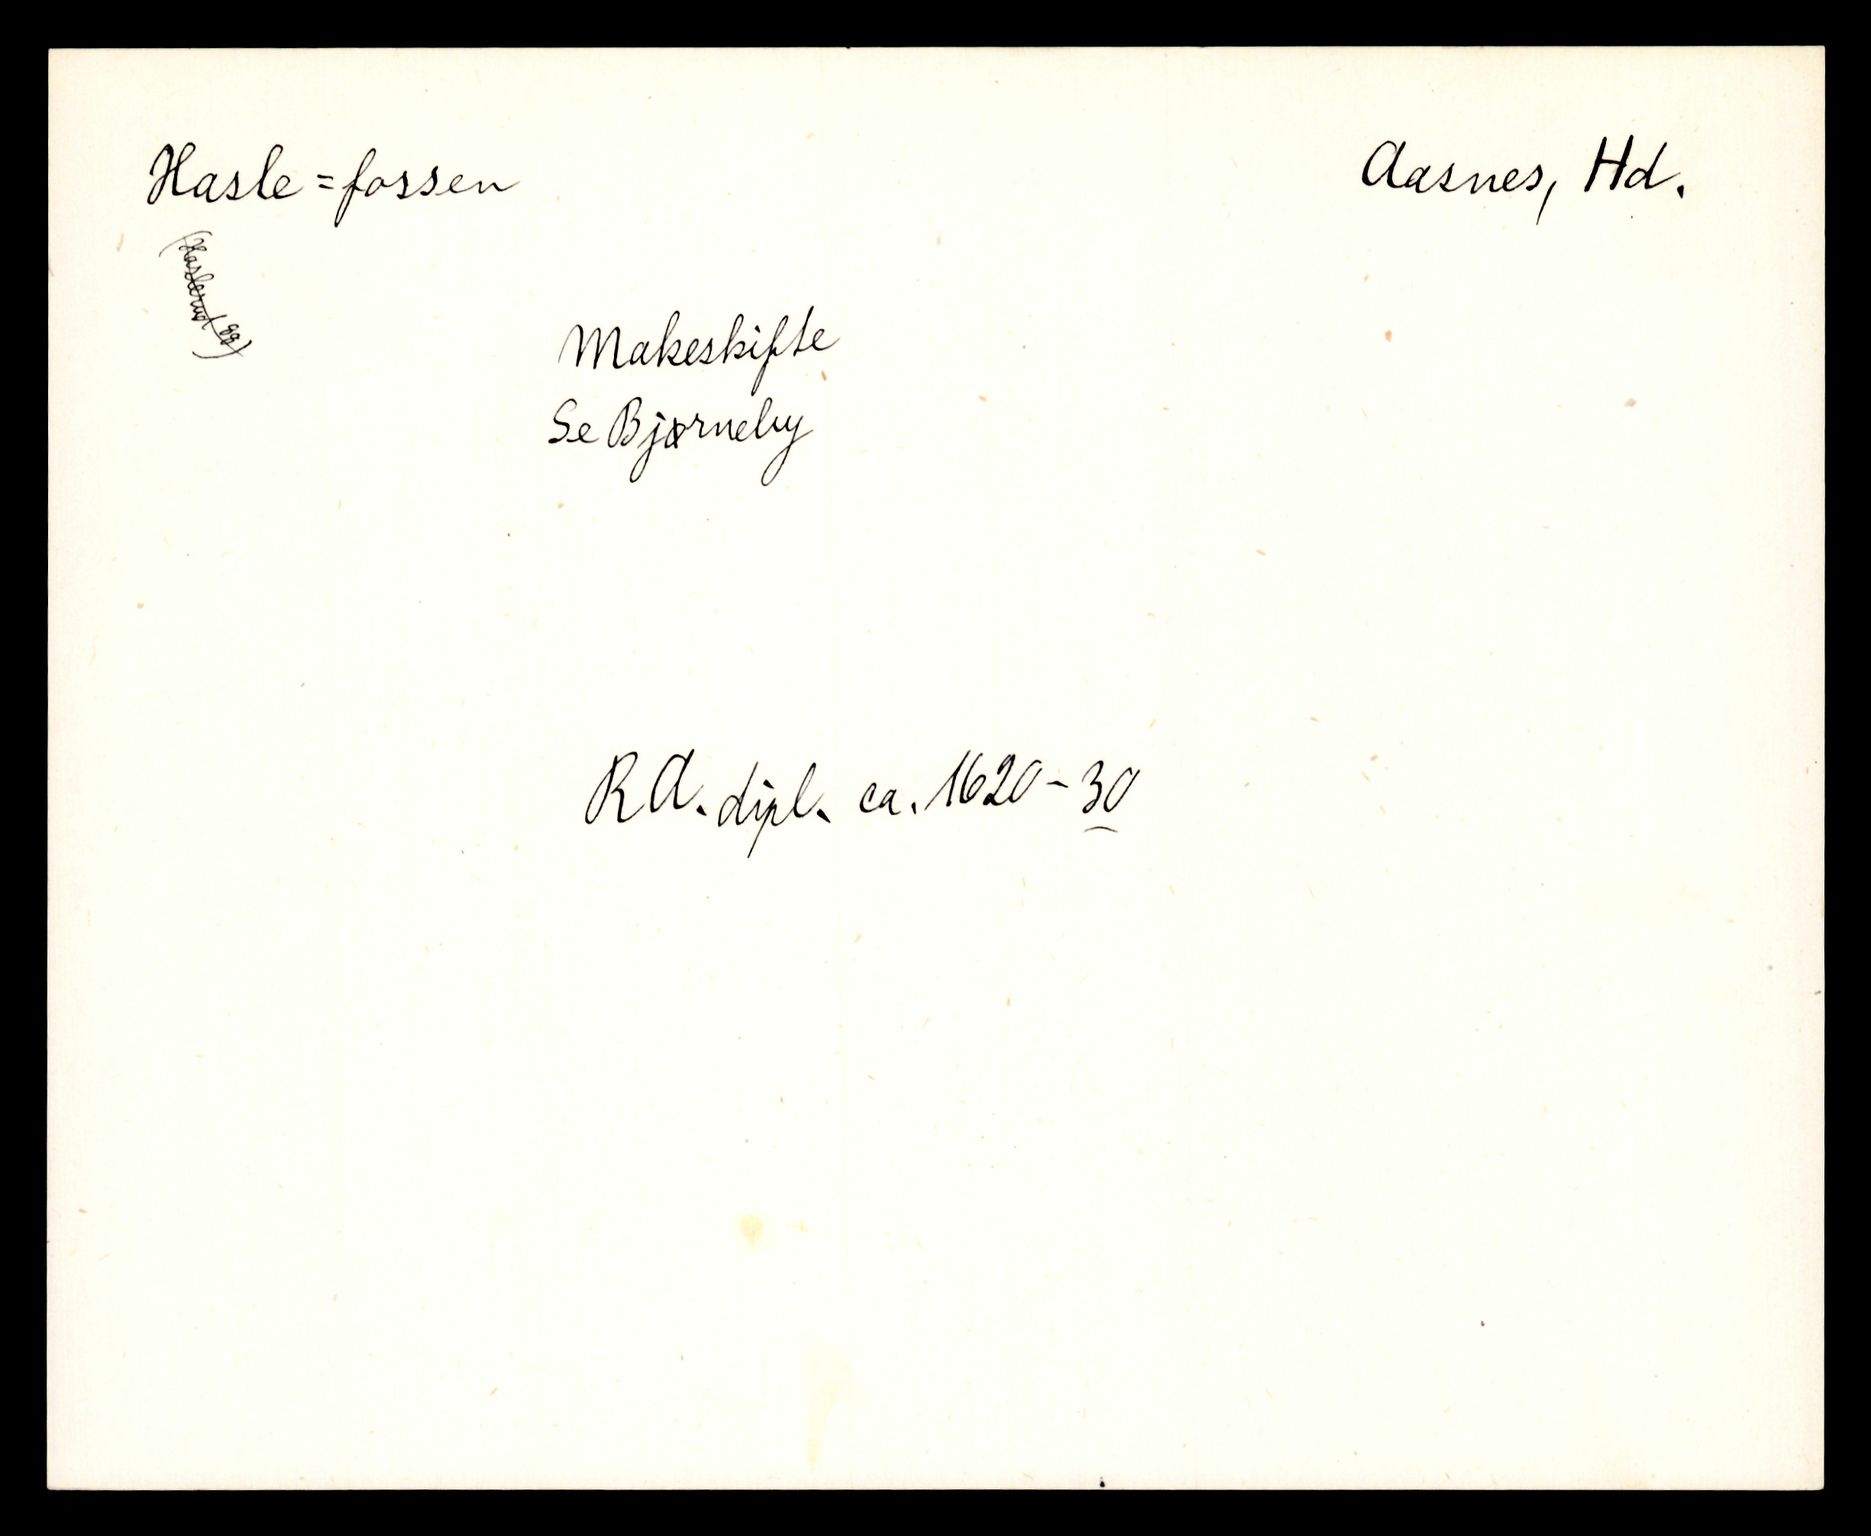 Hasle=fossen
Aasnes, Hd.
(Haslerud 99)
Makeskifte
Se Bjørneby
R A. dipl. ca. 1620-30